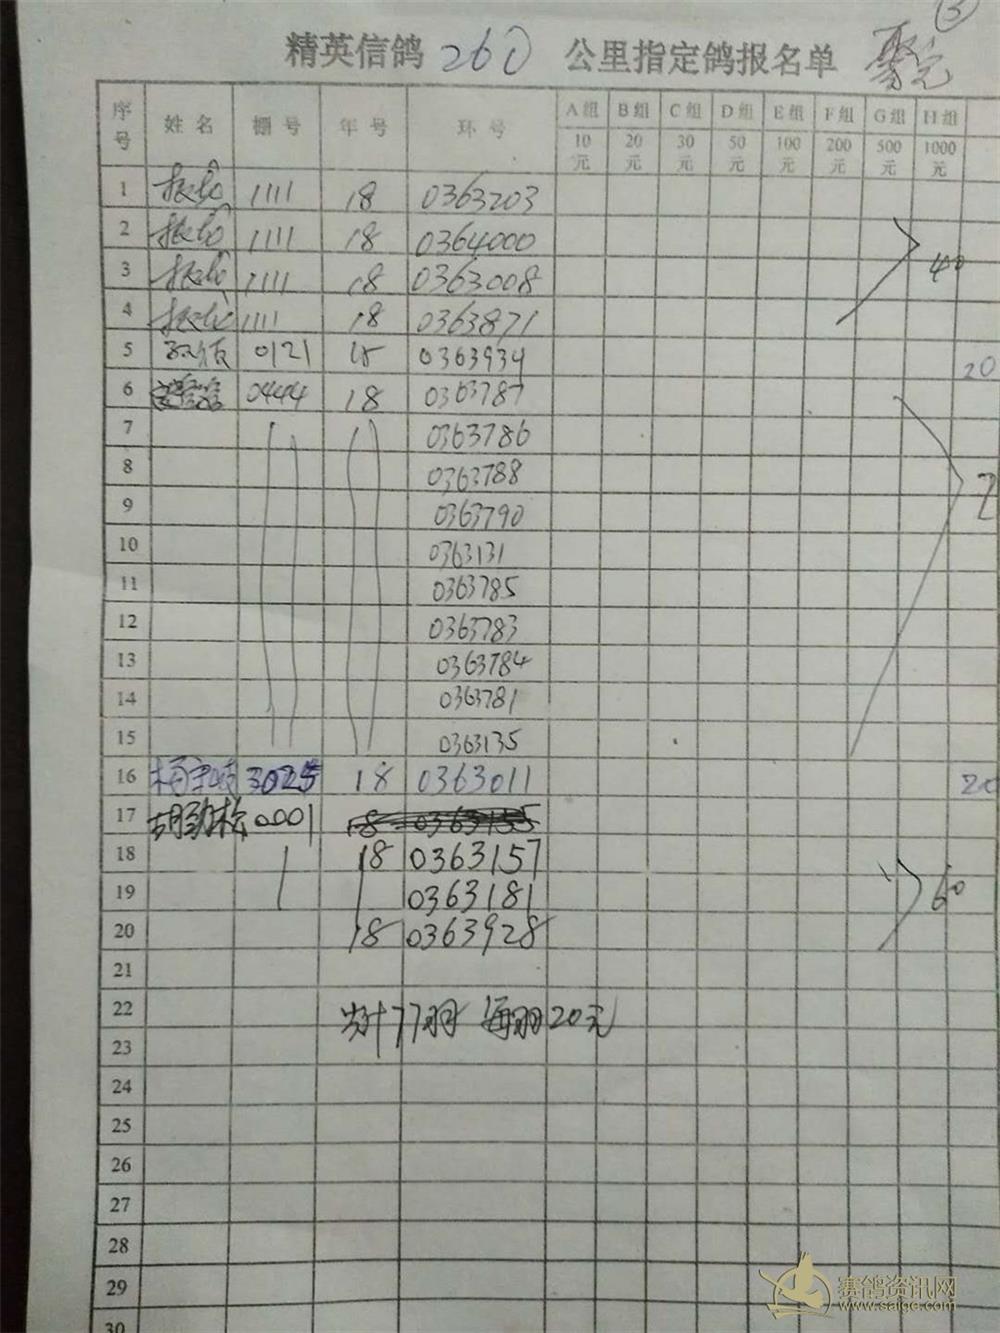 ③
精英信鸽 260 公里指定鸽报名单
序号 姓名 棚号 年号 环号 A组 B组 C组 D组 E组 F组 G组 H组
10元 20元 30元 50元 100元 200元 500元 1000元
1 1111 18 0363203
2 1111 18 0364000
3 1111 18 0363008 40
4 1111 18 0363871
5 0121 18 0363934 20
6 0444 18 0363787
7 0363786
8 0363788
9 0363790
10 0363131
11 0363785
12 0363783
13 0363784
14 0363781
15 0363135
16 3025 18 0363011 20
17 胡劲松 0001 18 0363155
18 18 0363157
19 0363181 60
20 18 0363928
21
22 共计77羽 每羽20元
23
24
25
26
27
28
29
30
赛鸽资讯网
www.saige.com